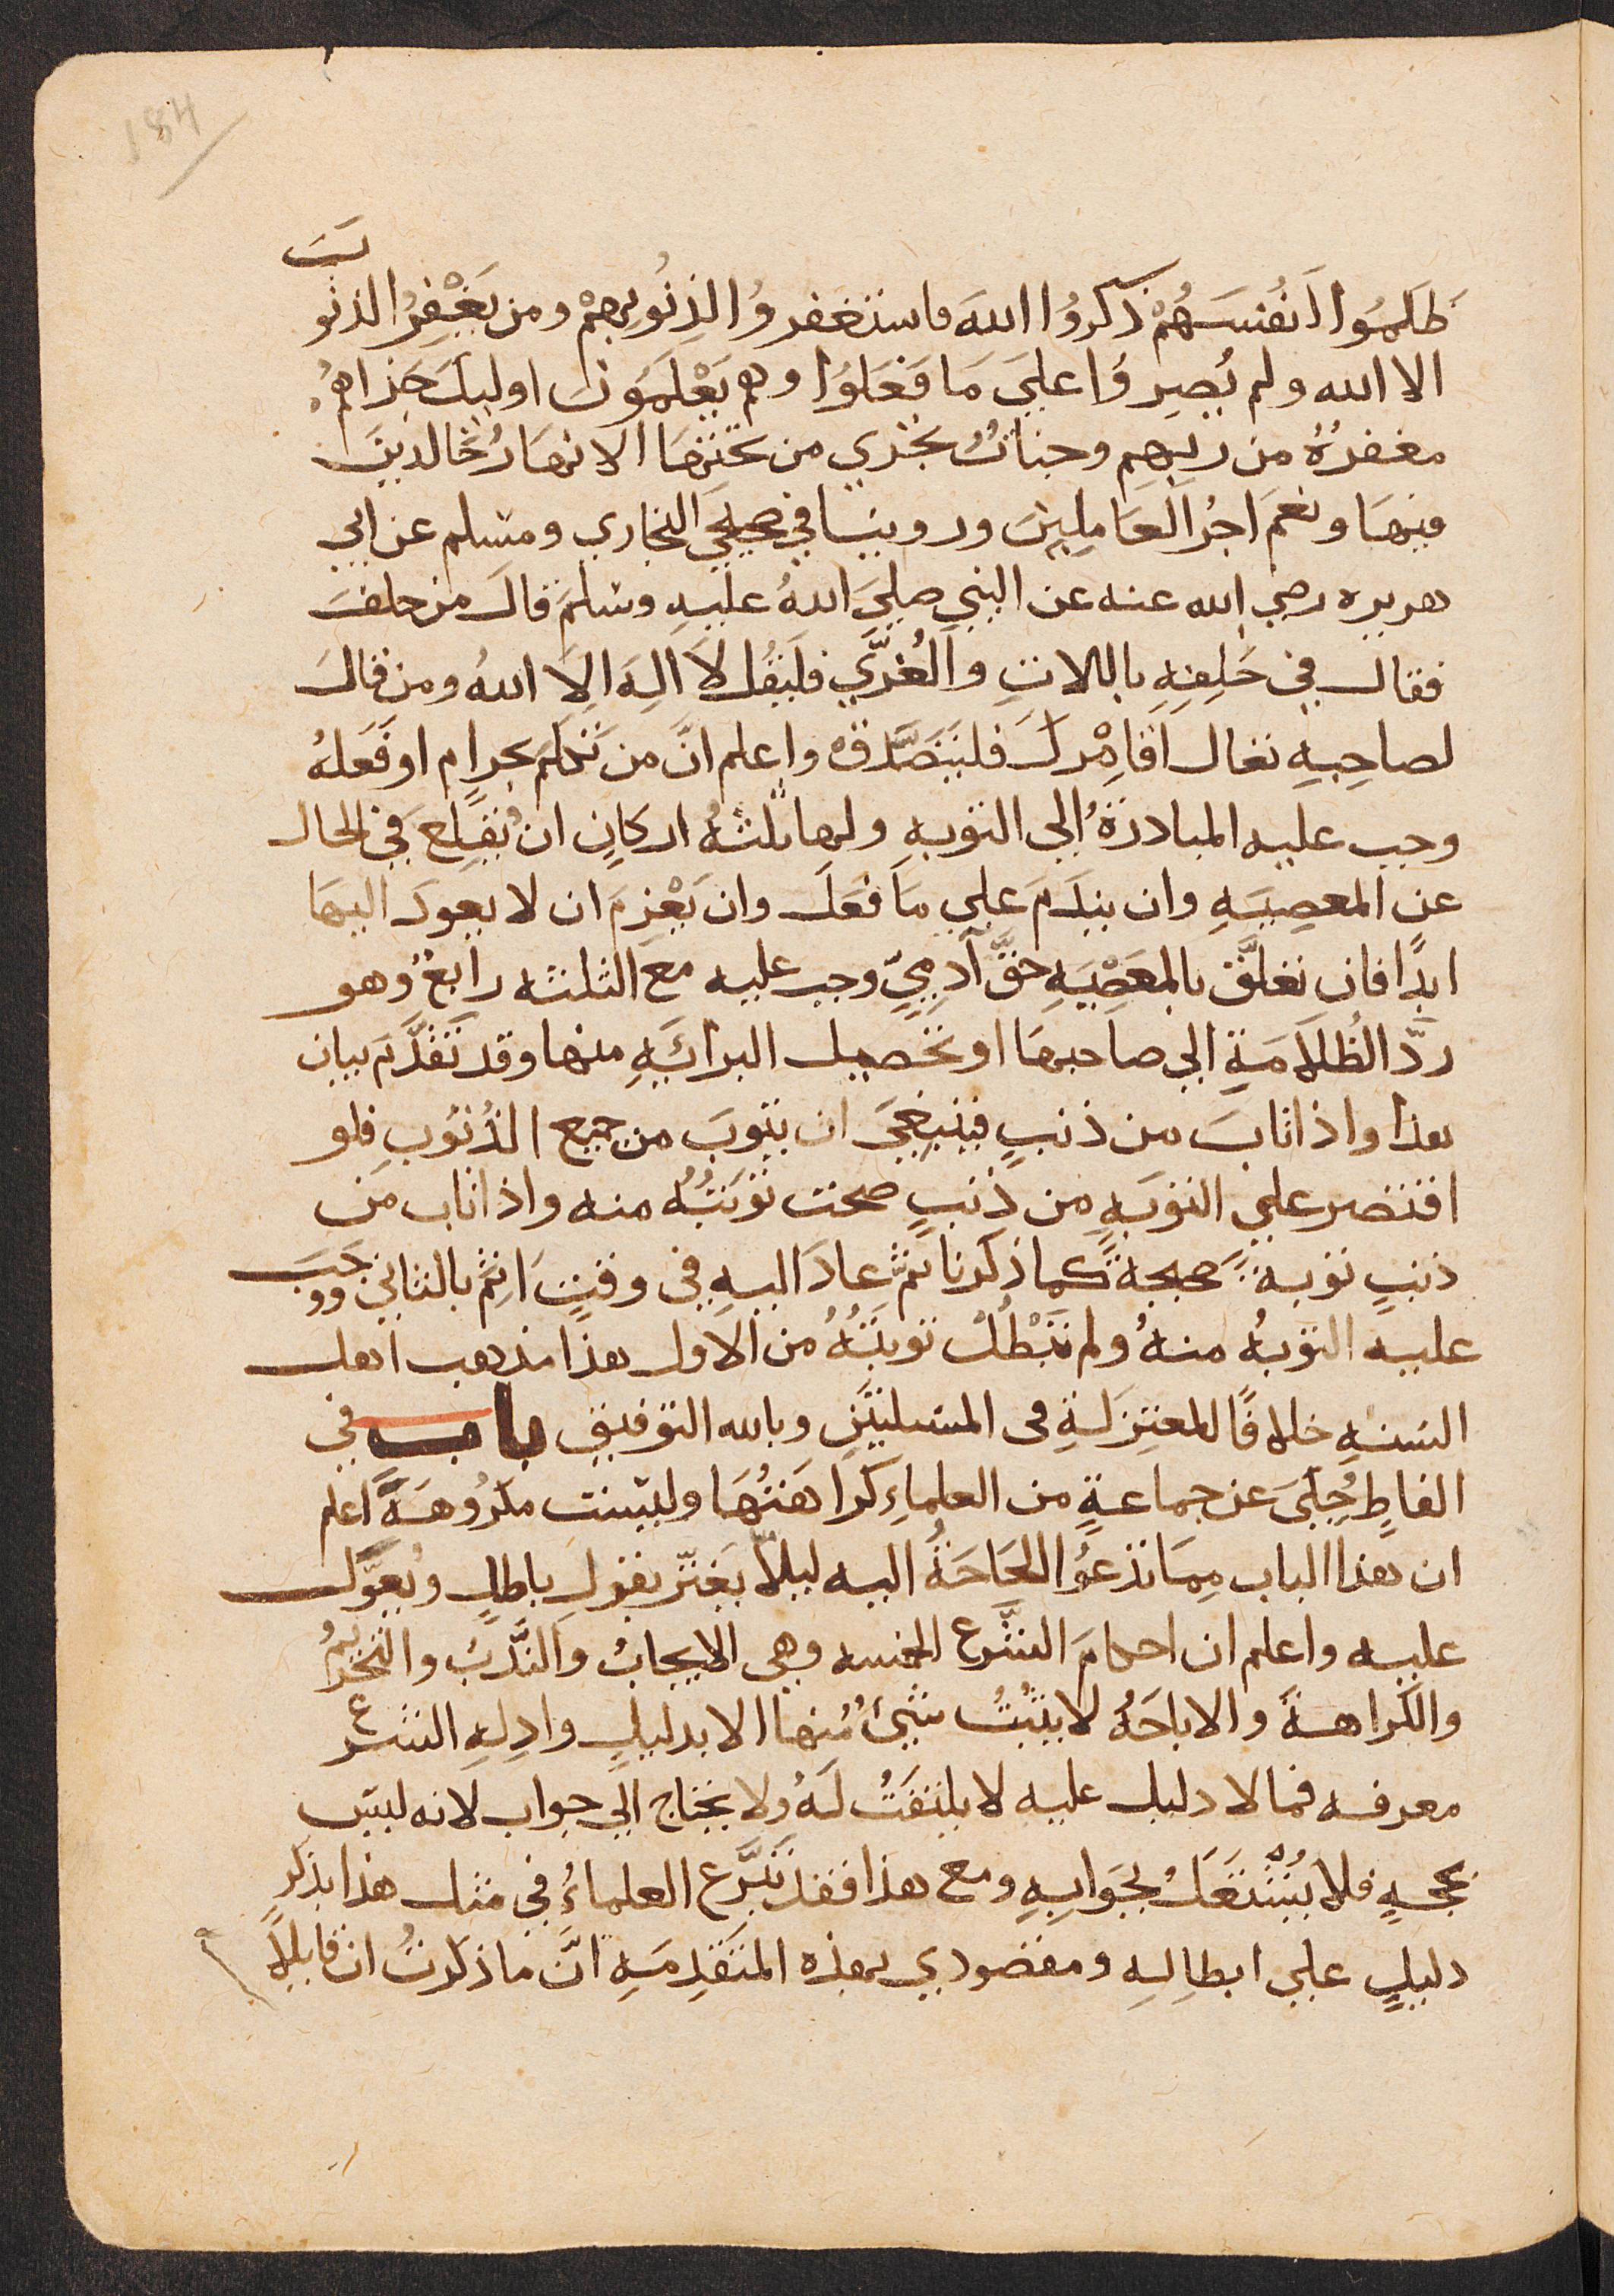 184
ظَلَمُوا اَنفُسَهُمْ ذَكَرُوا اللهَ فاستغفروُا لِذنُوبِهِمْ ومن يَغْفِرُ الذنوبَ
الا الله ولم يُصِروُا علىَ مَا فَعَلوُا وهم يَعْلَمُونَ اوليكَ جَزاهُم
مغفرةُ من ربهِم وجناتُ تجري من تحتِهَا الانهَارُ خَالدينَ
فيهَا ونعمَ اجرُ العَامِلِينَ وروينا في صحيحَي البخاري ومسلم عن ابي
هريره رضي الله عنه عن النبي صليَ اللهُ عليهِ وسلمَ قالَ من حلفَ
فقال في حَلِفِهِ باللاتِ والعُزَّي فليَقُل لاَ اِلهَ اِلا اللهُ ومن قالَ
لصاحِبِهِ تعال اُقَامِرْكَ فليَتَصَّدقْ واعلم انَّ من تكلمَ بحرامٍ او فَعَلهُ
وجب عليه المبادرةُ الي التوبهِ ولها ثلثةُ اركانٍ ان يُقلِعَ في الحال
عن المعصِيَهِ وان يندَمَ علي مَا فعَلَ وان يَعْزِمَ ان لا يعودَ اليهَا
ابدًا فان تعلَّق بالمعَصْيَهِ حقَّ آدمِيّ وجب عليه مع الثلثه رابعُ وهو
ردّ الظُلاَمَةِ الي صاحبهَا او تحصيل البرائَهِ منها وقد تَقدَّمَ بيان
هذا واذا تابَ من ذنبٍ فينبغيَ ان يتوبَ من جميع الذُنوُبِ فلو
اقتصر علي التوبَهِ من ذنبٍ صحت توبَتُهُ منه واذا تاب من
ذنبٍ توبهً صحيحةً كما ذكرنا ثمَّ عادَ اليهِ في وقتٍ اثِمَ بالثاني ووجَبَ
عليه التوبهُ منهُ ولم تَبْطُلْ توبَتُهُ من الاول هذا مذهب اهل
السنهِ خلافًا لمعتِزلَةِ في المسلتيَنِ وبالله التوفيق باب في
الفاظٍ حُكىَ عن جماعةٍ من العلماءِ كَراهَتُهَا وليست مكرُوهَةً اعلم
ان هذا الباب مِمَا تدعوُا الحَاجَةُ اليه ليلاّ يَغترّ بقولِ باطلٍ ويُعوَّل
عليه واعلم ان احكامَ الشَّرع الخمسه وهي الايجابُ والنَّدبُ والتحريمُ
والكراهةُ والاباحَهُ لا يثبُتُ شيئُ مُنها الا بدليلٍ وادِلهِ الشرع
معرفه فما لا دليل عليهِ لا يلتفَتُ لَهُ ولا يحتاج الي جواب لانه ليس
بحجهٍ فلا يُشتغَلُ بجَوابِهِ ومع هذا فقد تَبَّرع العلماءُ في مثل هذا بذكرِ
دليلٍ علي ابطِالِهِ ومقصودي بهذه المتَقدِمَهِ انَّ ما ذكرتُ ان قايلاً